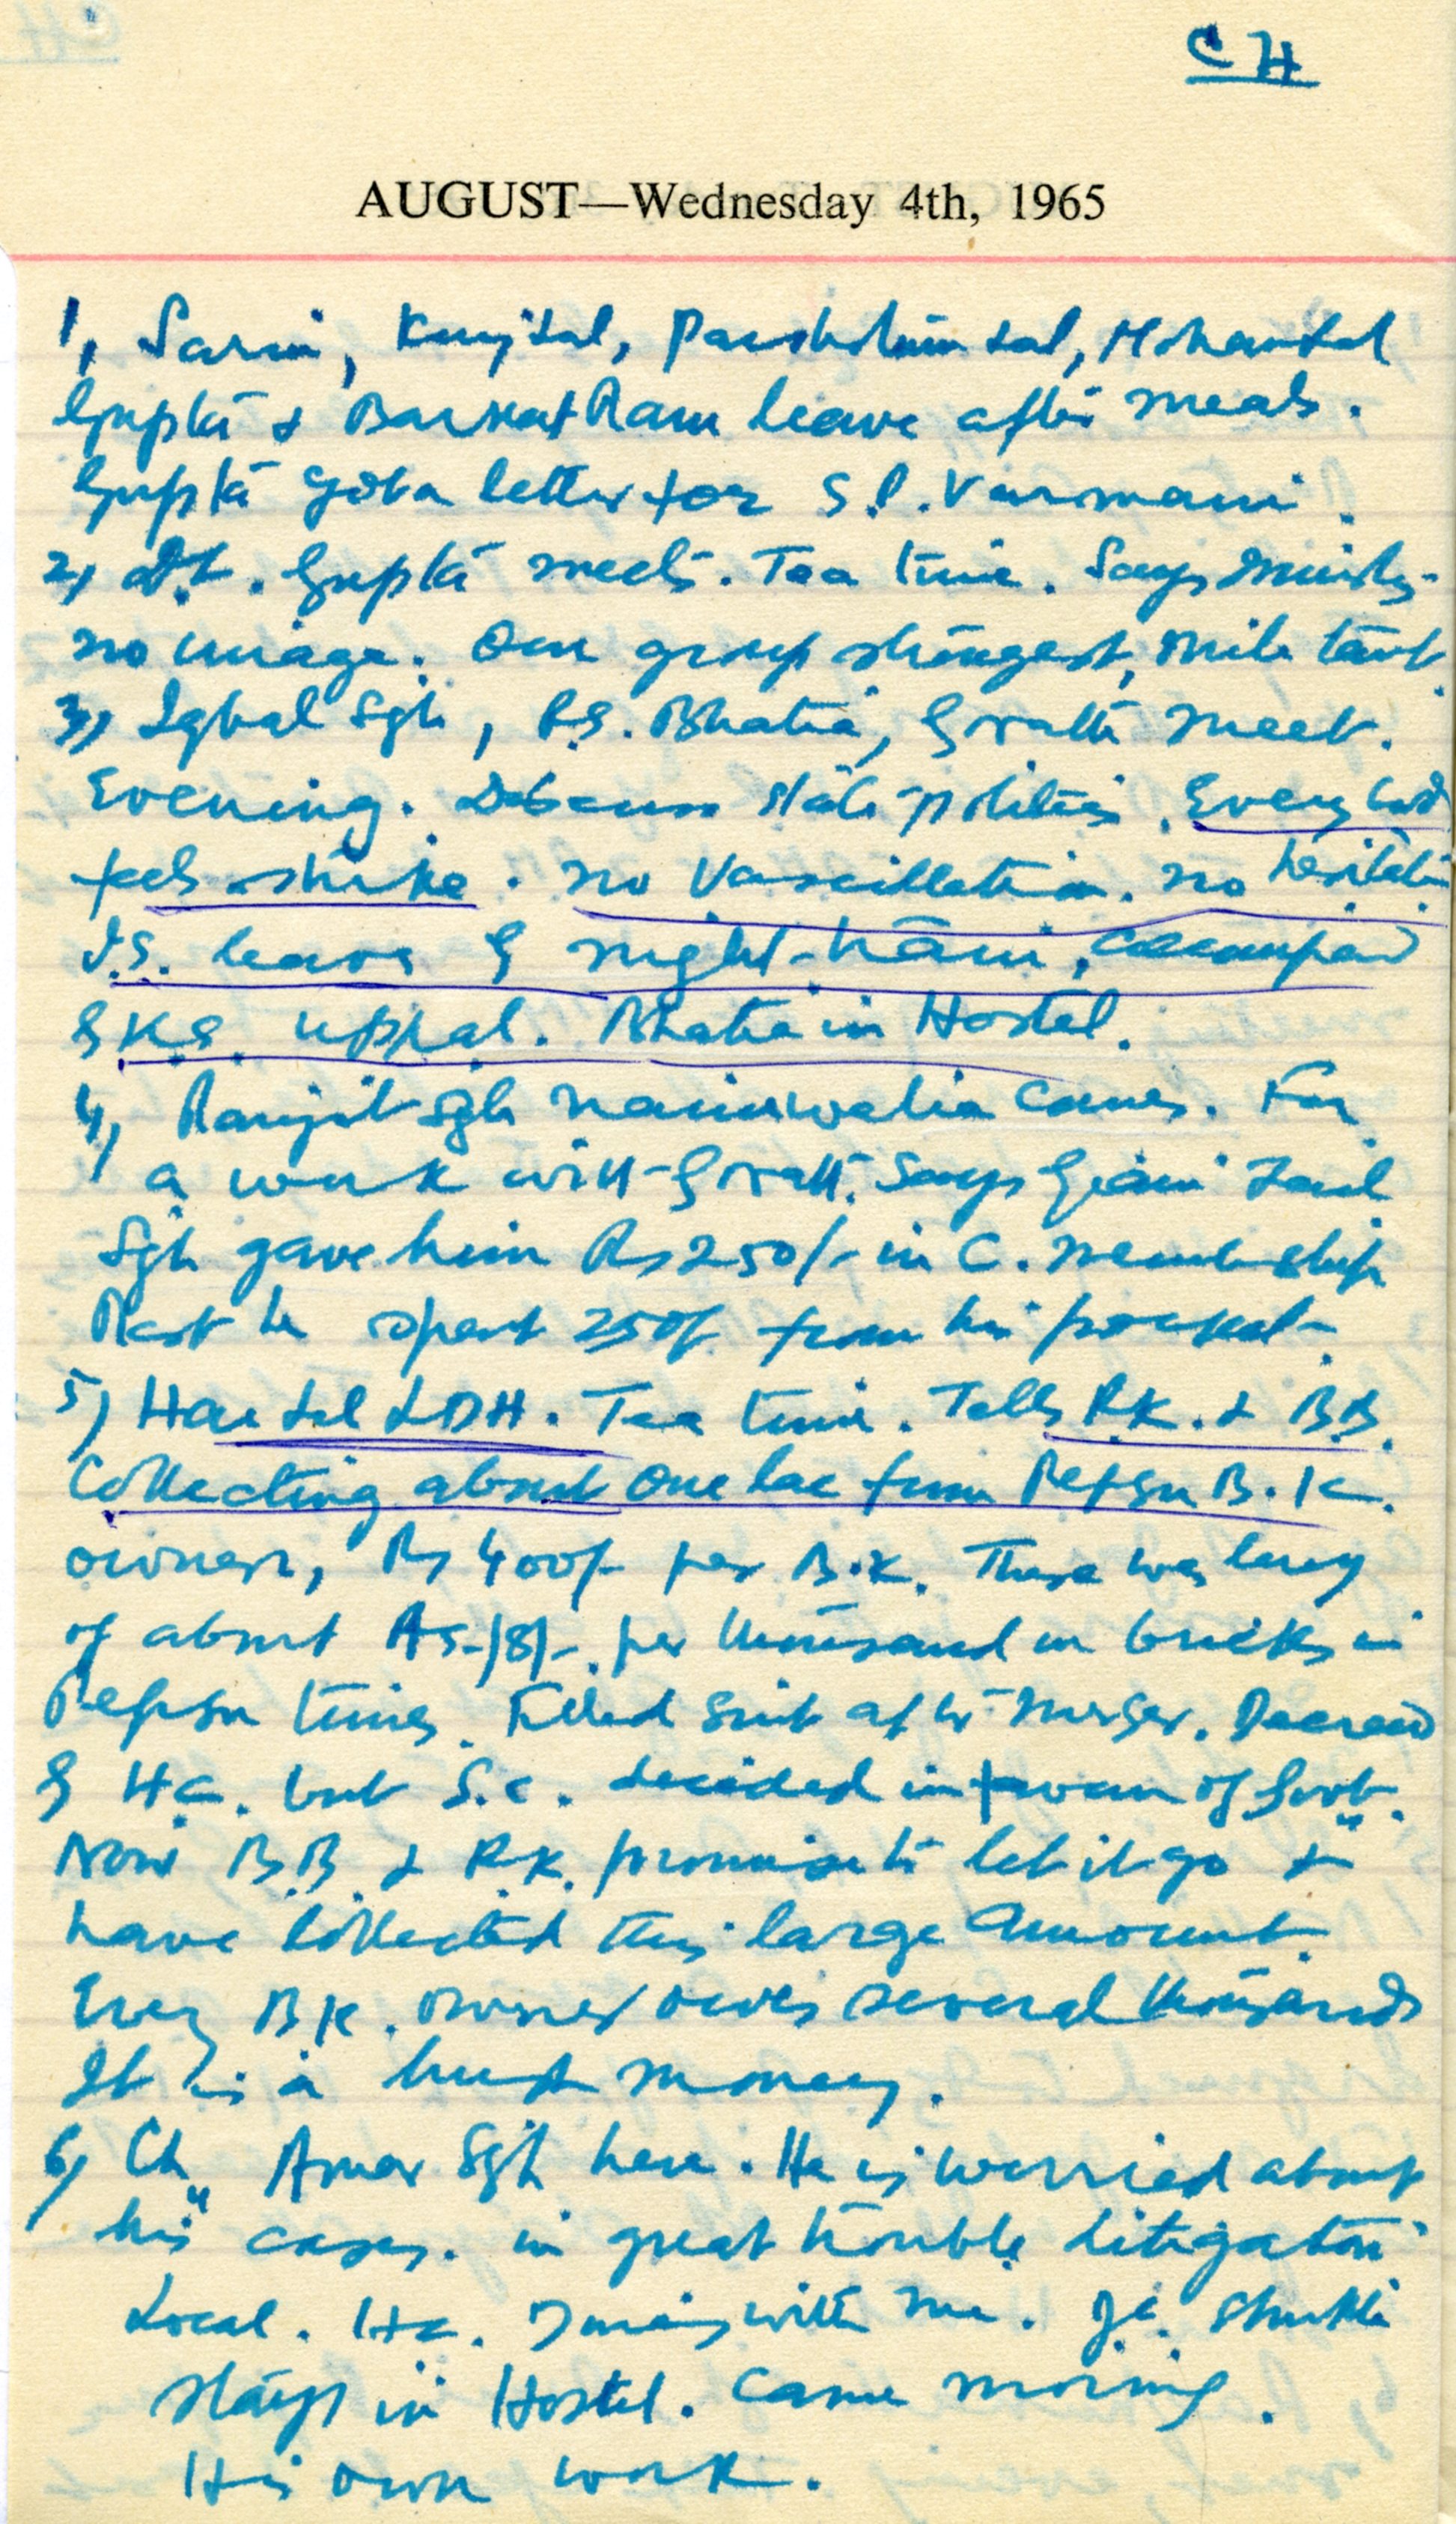 CH
AUGUST—Wednesday 4th, 1965
1, Sarin, Kunjlal, Parshotam Lal, Mohan Lal
Gupta & Barkat Ram leave after meals.
Gupta got a letter for S.P. Varmani.
2, D.D. Gupta meets. Tea time. Says Ministry-
no image. Our group strongest, militant.
3,, Iqbal Sgh, P.S. Bhatia, Gratti meet.
Evening. Discuss state politics. Every body
feels strike. no Vascillation. no hesitation
I.S. leaves by night-train, accompanied
by K.S. Uppal. Bhatia in Hostel.
4, Ranjit Sgh Nainewalia comes. For
a work with Gratti. Says Giani Zail
Sgh gave him Rs 250/- in C. membership
Rest he spent 250/- from his pocket-
5) Har Lal LDH. Tea time. Tells R.K. & B.B.
Collecting about one lac from Pepsu B.K.
owners, Rs 400/- per B.K. There was levy
of about As-/8/- per thousand on bricks in
Pepsu times. Filed suit after merger. Decreed
by H.C. but S.C. decided in favour of Govt.
Now B.B. & R.K. promise to let it go &
have collected this large amount.
Every B.K. owner owes several thousands
It is a hush money.
6, Ch. Amar Sgh here. He is worried about
his cases. in great trouble Litigation
Local. H.C. Dines with me. J.C. Shukla
stays in Hostel. Came morning.
His own work.